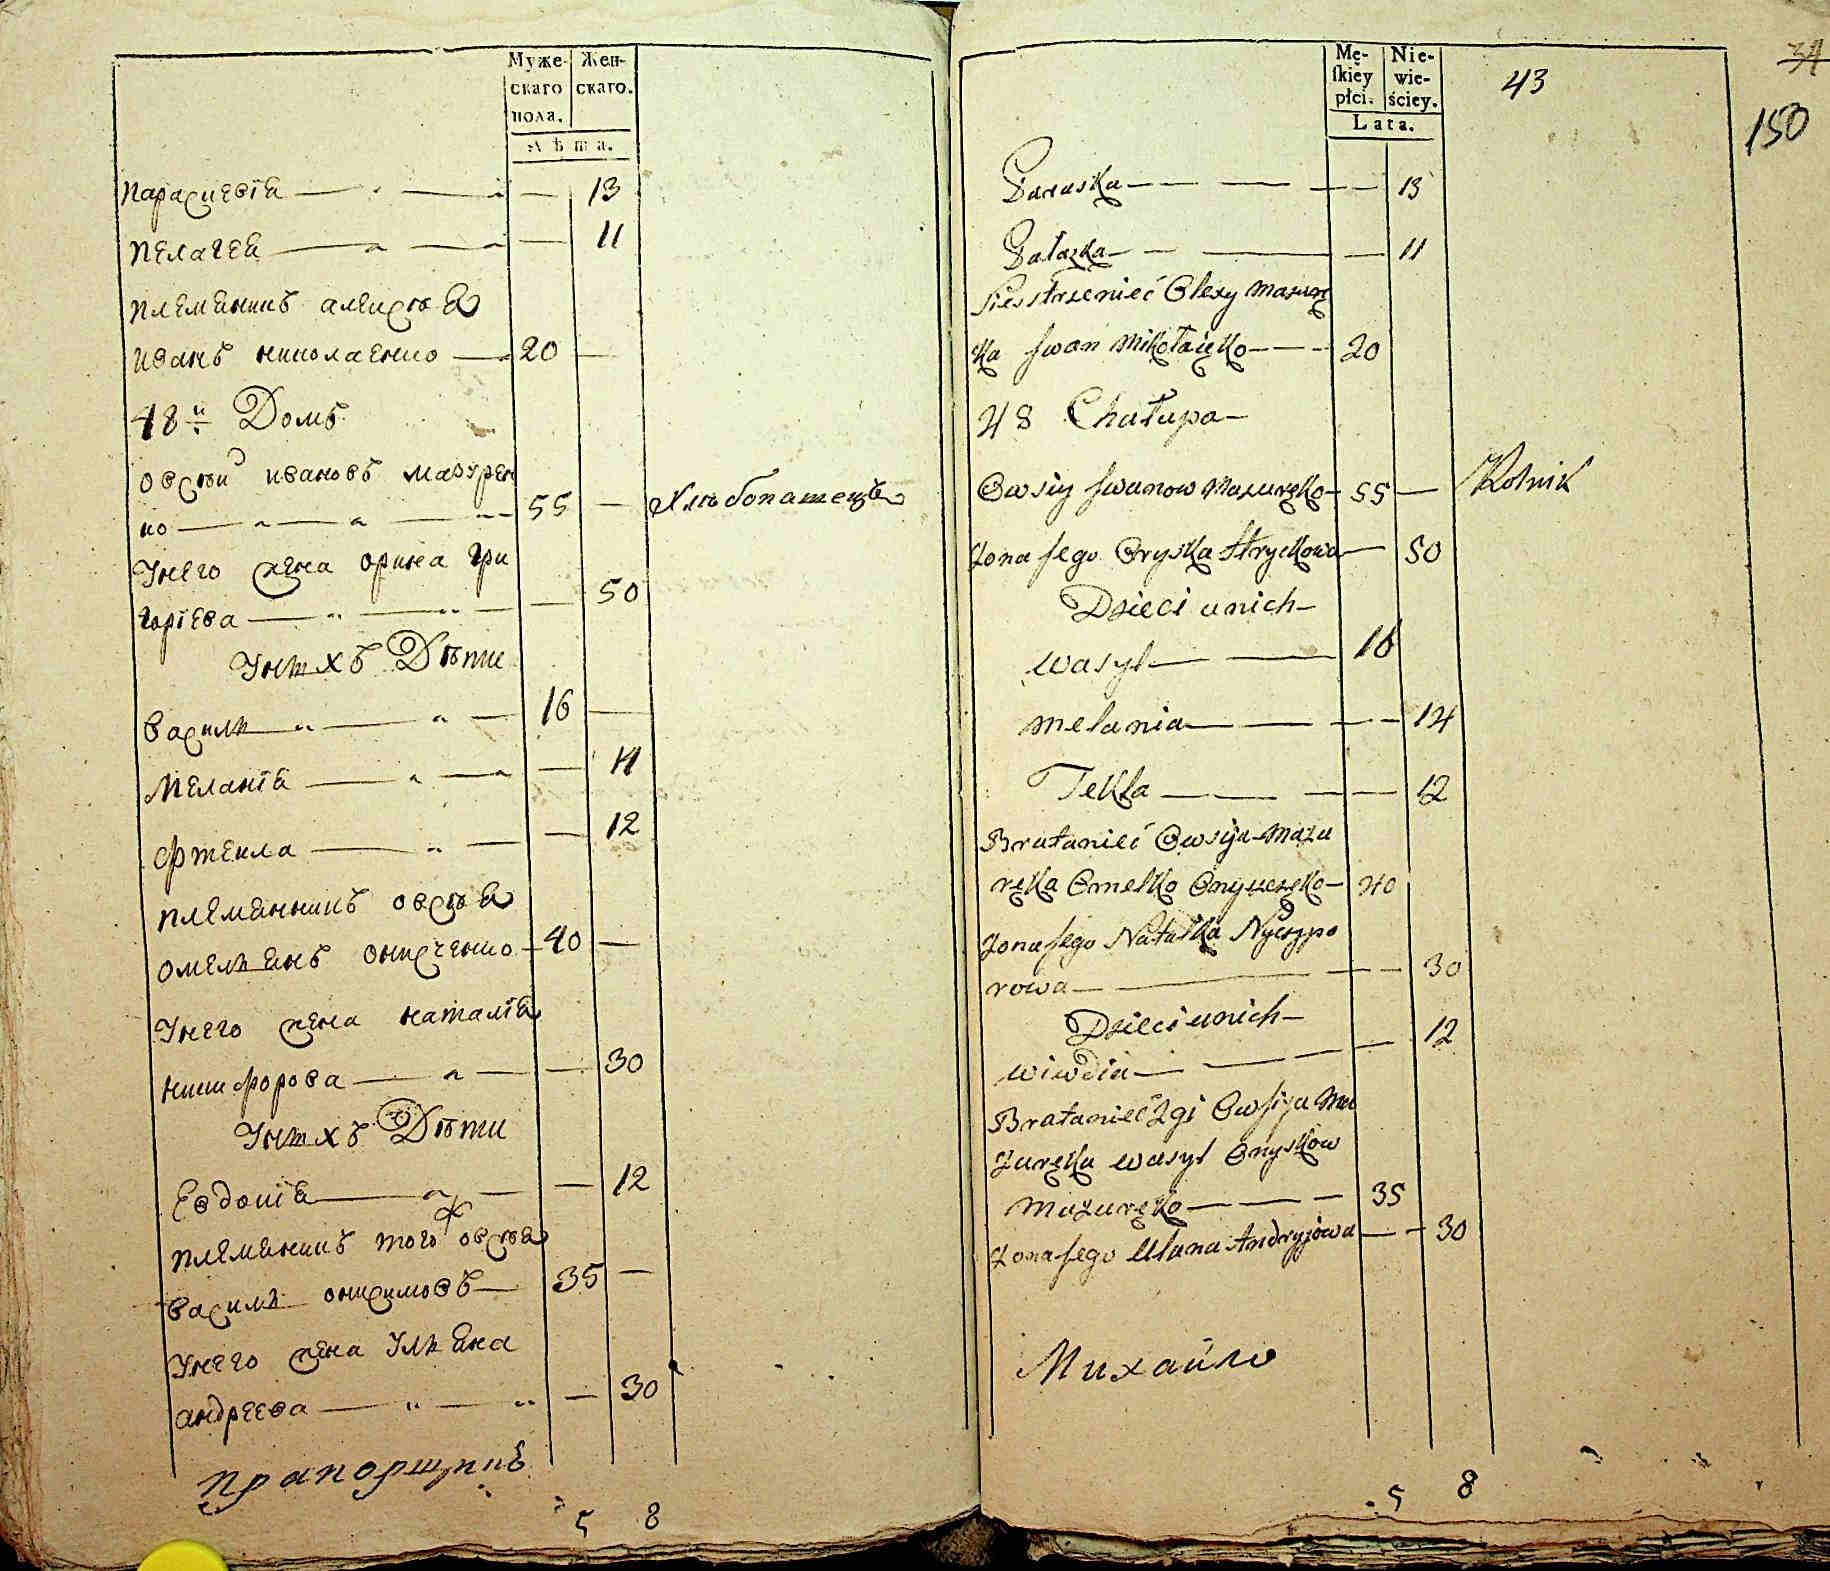 Муже-
скаго
пола.
Жен-
скаго.
Лѣта.
Парасцевіа — — — 13
Пелагеа — — — 11
Племѣникъ алексѣа
иванъ николаенко — 20 —
48й Домъ
Овсѣй ивановъ мазурен
ко — — — 55 — Хлѣбопашецъ
Унего жена орина гри
горіева — — — 50
Унихъ Дѣти
Василь — — 16 —
Меланіа — — — 14
Фтекла — — — 12
Племѣнникъ овсѣа
омельанъ онисченко — 40 —
Унего жена наталіа
никифорова — — — 30
Унихъ Дѣти
Евдокіа — — — 12
Племѣникъ того ж овсѣа
Василь онисимовъ — 35 —
Унего жена Ульана
андреева — — — 30
прапорщикъ
5 8
Mę-
skiey
płci.
Nie-
wie-
ściey.
Lata.
43
34
150
Paraska — — — 13
Pałazka — — — 11
Siestrzenieć Olexy Mazurę
ka Iwan Mikołaięko — — 20
48 Chałupa —
Owsiy Iwanow Mazuręko — 55 — Rolnik
Żona Jego Oryska Hryckowa — 50
Dzieci unich —
Wasyl — — 16
Melania — — — 14
Tekla — — — 12
Bratanieć Owsija Mazu
ręka Omelko Onyszczęko — 40
Żona Jego Natalka Nyczypo
rowa — — — 30
Dzieci unich —
Wiwdia — — — 12
Bratanieć 2gi Owsija Ma
zuręka Wasyl Onyskow
Mazuręko — — — 35
Żona Jego Ulana Andryjowa — — 30
Михайло
5 8